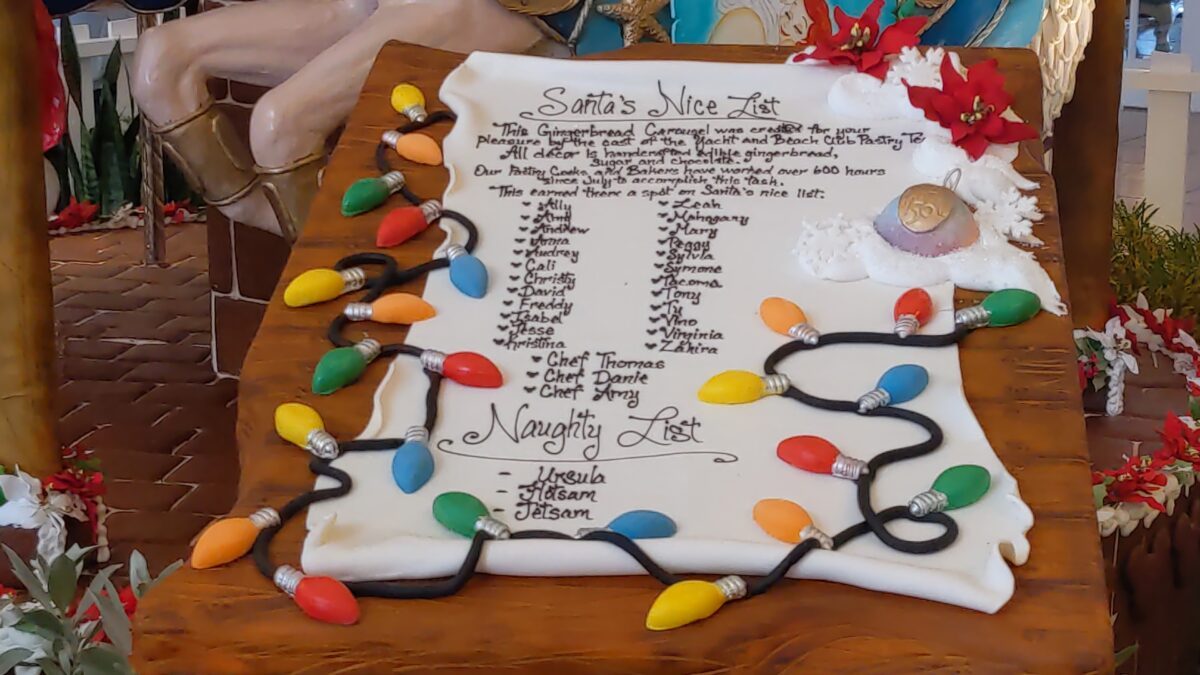 Santa's Nice List
This Gingerbread Carousel was created for your
pleasure by the cast of the Yacht and Beach Club Pastry Te
All decor is handcrafted edible gingerbread,
sugar and chocolate.
Our Pastry Cooks and Bakers have worked over 600 hours
since July to accomplish this task.
This earned them a spot on Santa's nice list.
Ally Leah
Amy Mahogany
Andrew Mary
Anna Peggy
Audrey Sylvia
Cali Symone
Christy Tacoma
David Tony
Freddy Ty
Isabel Vino
Jesse Virginia
Kristina Zahira
Chef Thomas
Chef Danie
Chef Amy
Naughty List
- Ursula
- Flotsam
- Jetsam